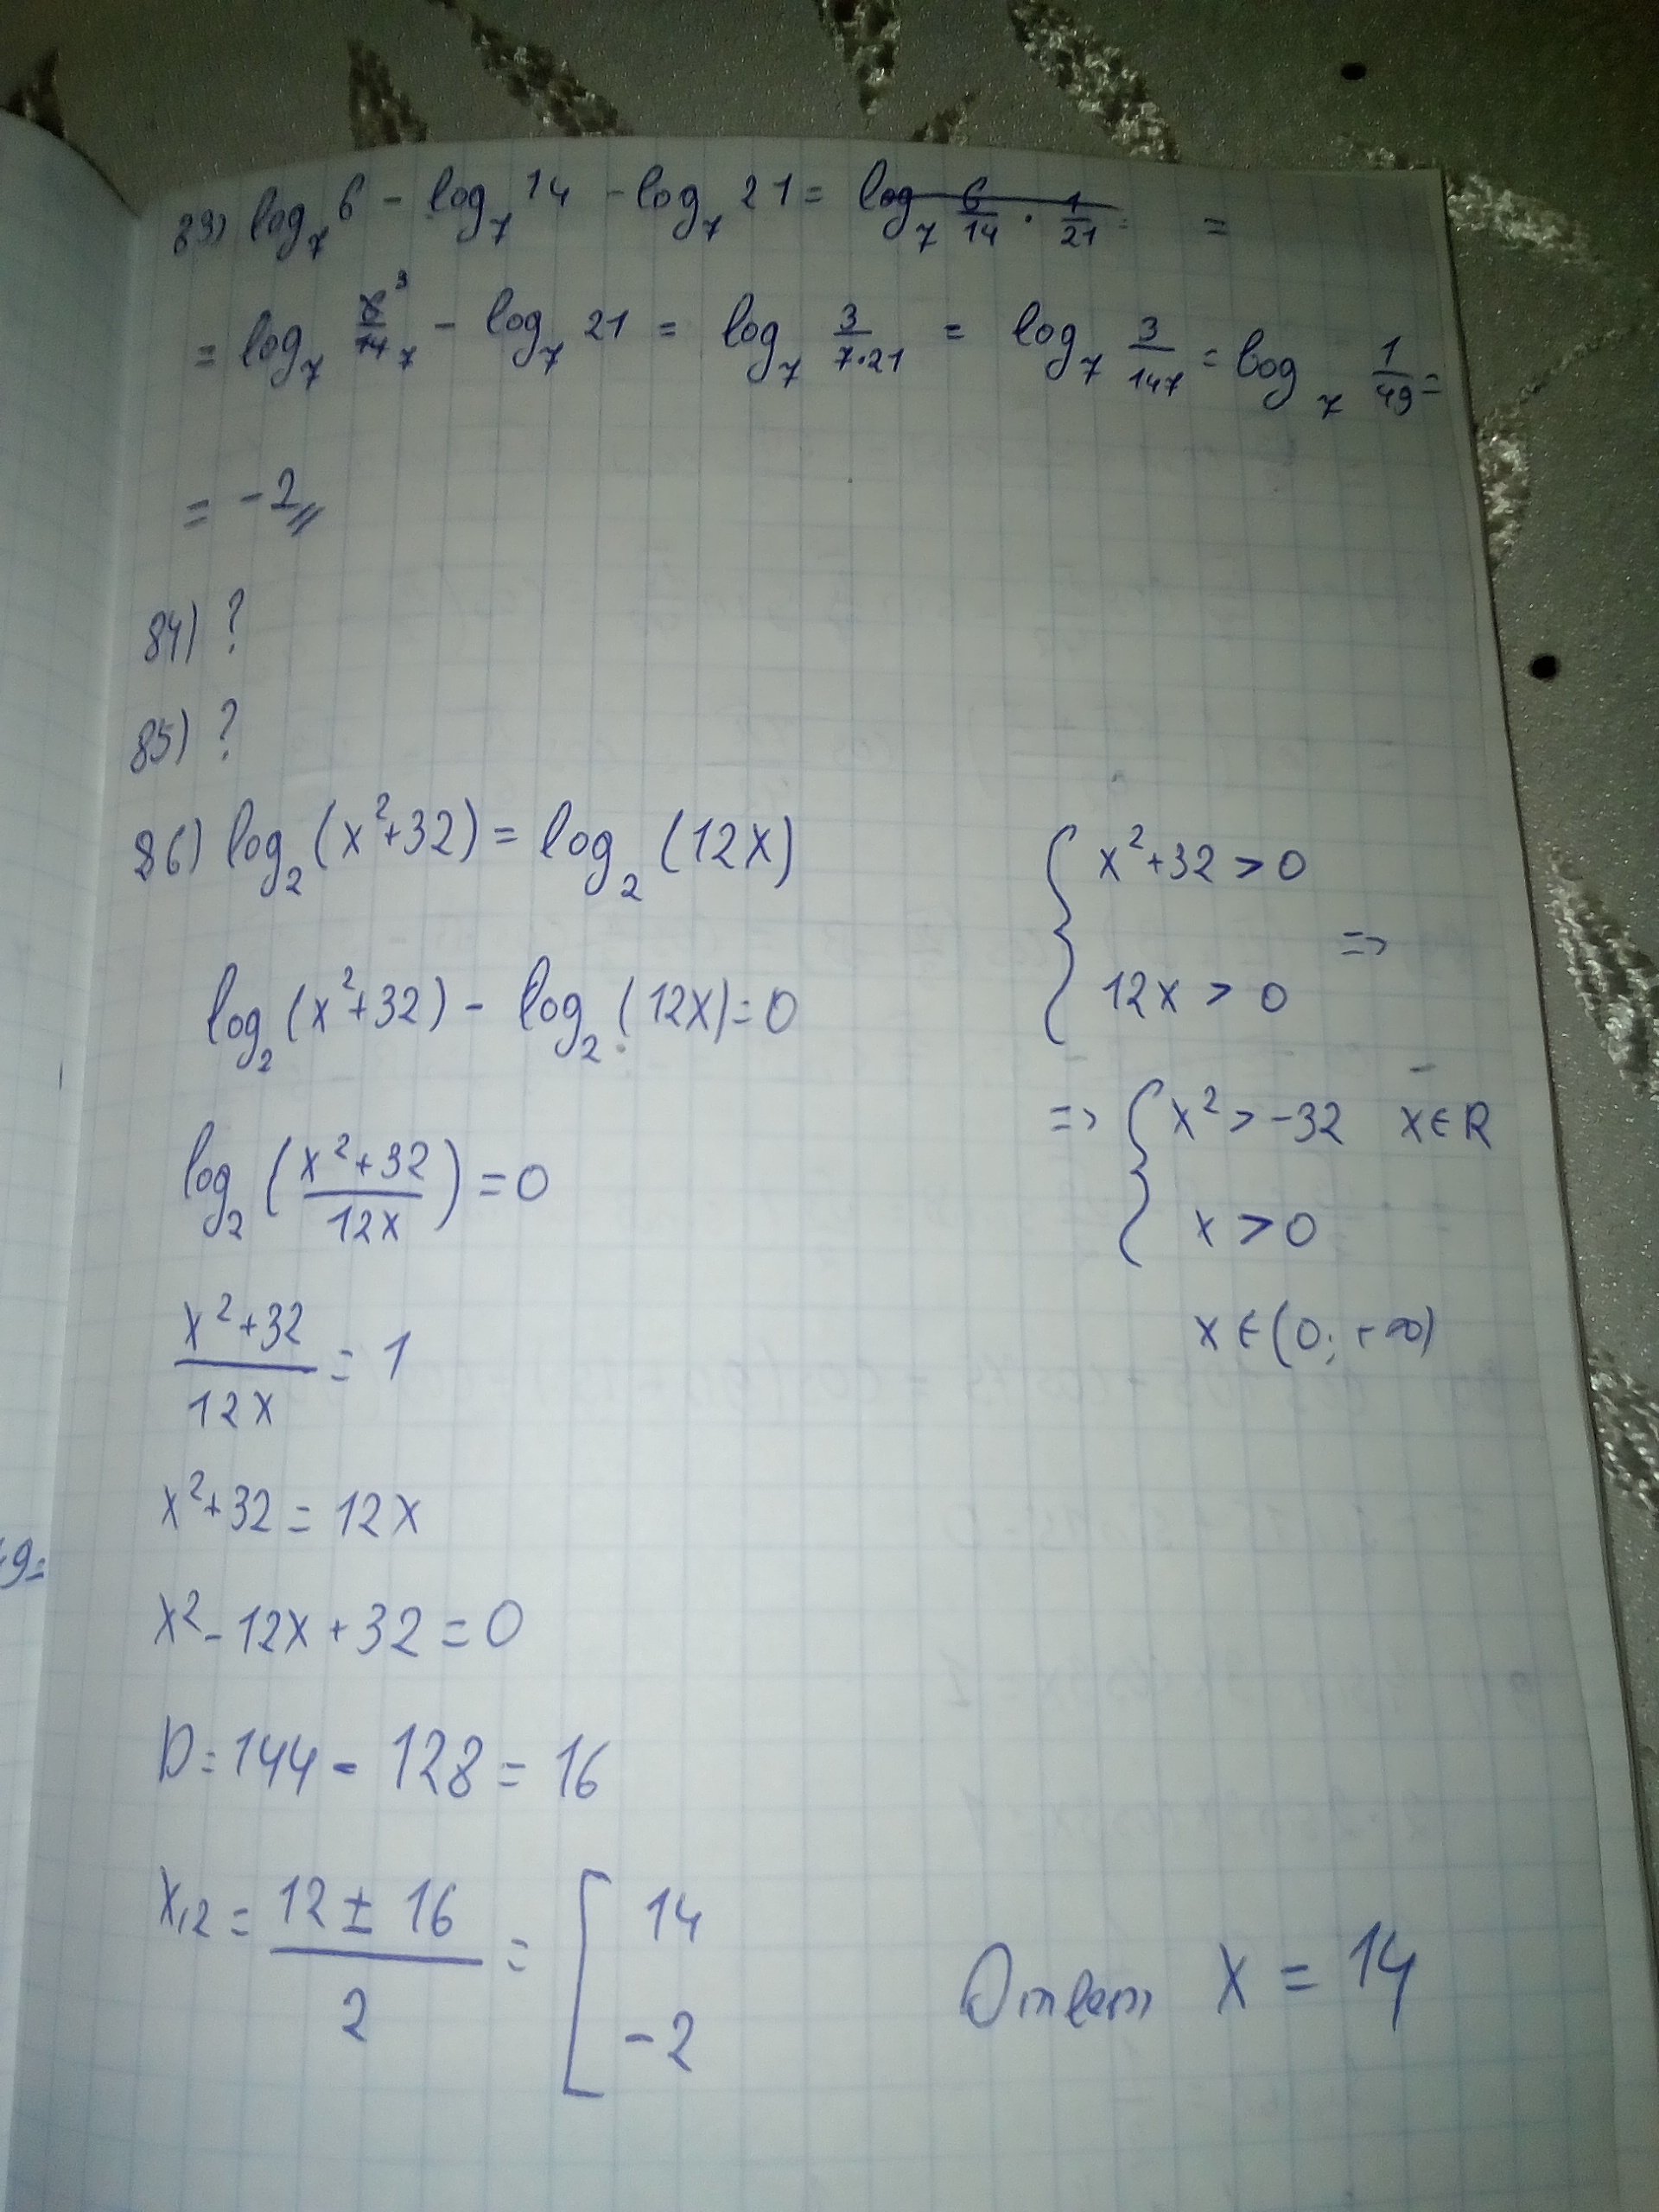 83) log₇ 6 - log₇ 14 - log₇ 21 = log₇ 6/14 · 1/21 = =
= log₇ 6³/14₇ - log₇ 21 = log₇ 3/7·21 = log₇ 3/147 = log₇ 1/49 =
= -2
84) ?
85) ?
86) log₂(x²+32) = log₂(12x)
log₂(x²+32) - log₂(12x) = 0
log₂((x²+32)/12x) = 0
(x²+32)/12x = 1
x²+32 = 12x
x² - 12x + 32 = 0
D = 144 - 128 = 16
x₁,₂ = (12 ± 16)/2 = [ 14
-2
{ x²+32 > 0
12x > 0 =>
=> { x² > -32 x ∈ R
x > 0
x ∈ (0; +∞)
Ответ x = 14
9=